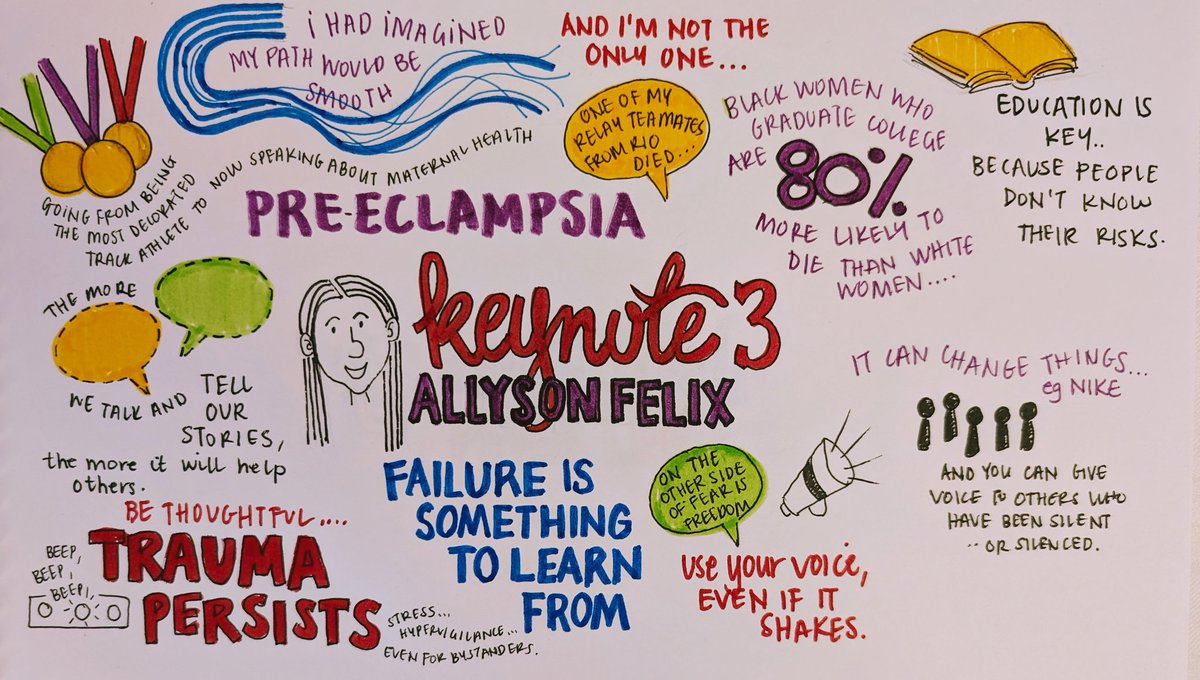 i HAD iMAGiNED
MY PATH WOULD BE
SMOOTH
GOING FROM BEING
THE MOST DECORATED
TRACK ATHLETE TO NOW SPEAKING ABOUT MATERNAL HEALTH
PRE-ECLAMPSIA
AND I'M NOT THE
ONLY ONE...
ONE OF MY
RELAY TEAMATES
FROM RIO
DIED...
BLACK WOMEN WHO
GRADUATE COLLEGE
ARE 80%
MORE LIKELY TO
DIE THAN WHITE
WOMEN....
EDUCATION IS
KEY..
BECAUSE PEOPLE
DON'T KNOW
THEIR RISKS.
THE MORE
WE TALK AND TELL
OUR
STORIES,
the more it will help
others.
keynote 3
ALLYSON FELIX
IT CAN CHANGE THINGS...
eg NIKE
AND YOU CAN GIVE
VOICE to OTHERS WHO
HAVE BEEN SILENT
-- OR SILENCED.
BE THOUGHTFUL....
TRAUMA
PERSISTS
BEEP,
BEEP,
BEEP,
STRESS...
HYPERVIGILANCE...
EVEN FOR BYSTANDERS.
FAILURE IS
SOMETHING
TO LEARN
FROM
ON THE
OTHER SIDE
OF FEAR IS
FREEDOM
use your voice,
EVEN IF IT
SHAKES.